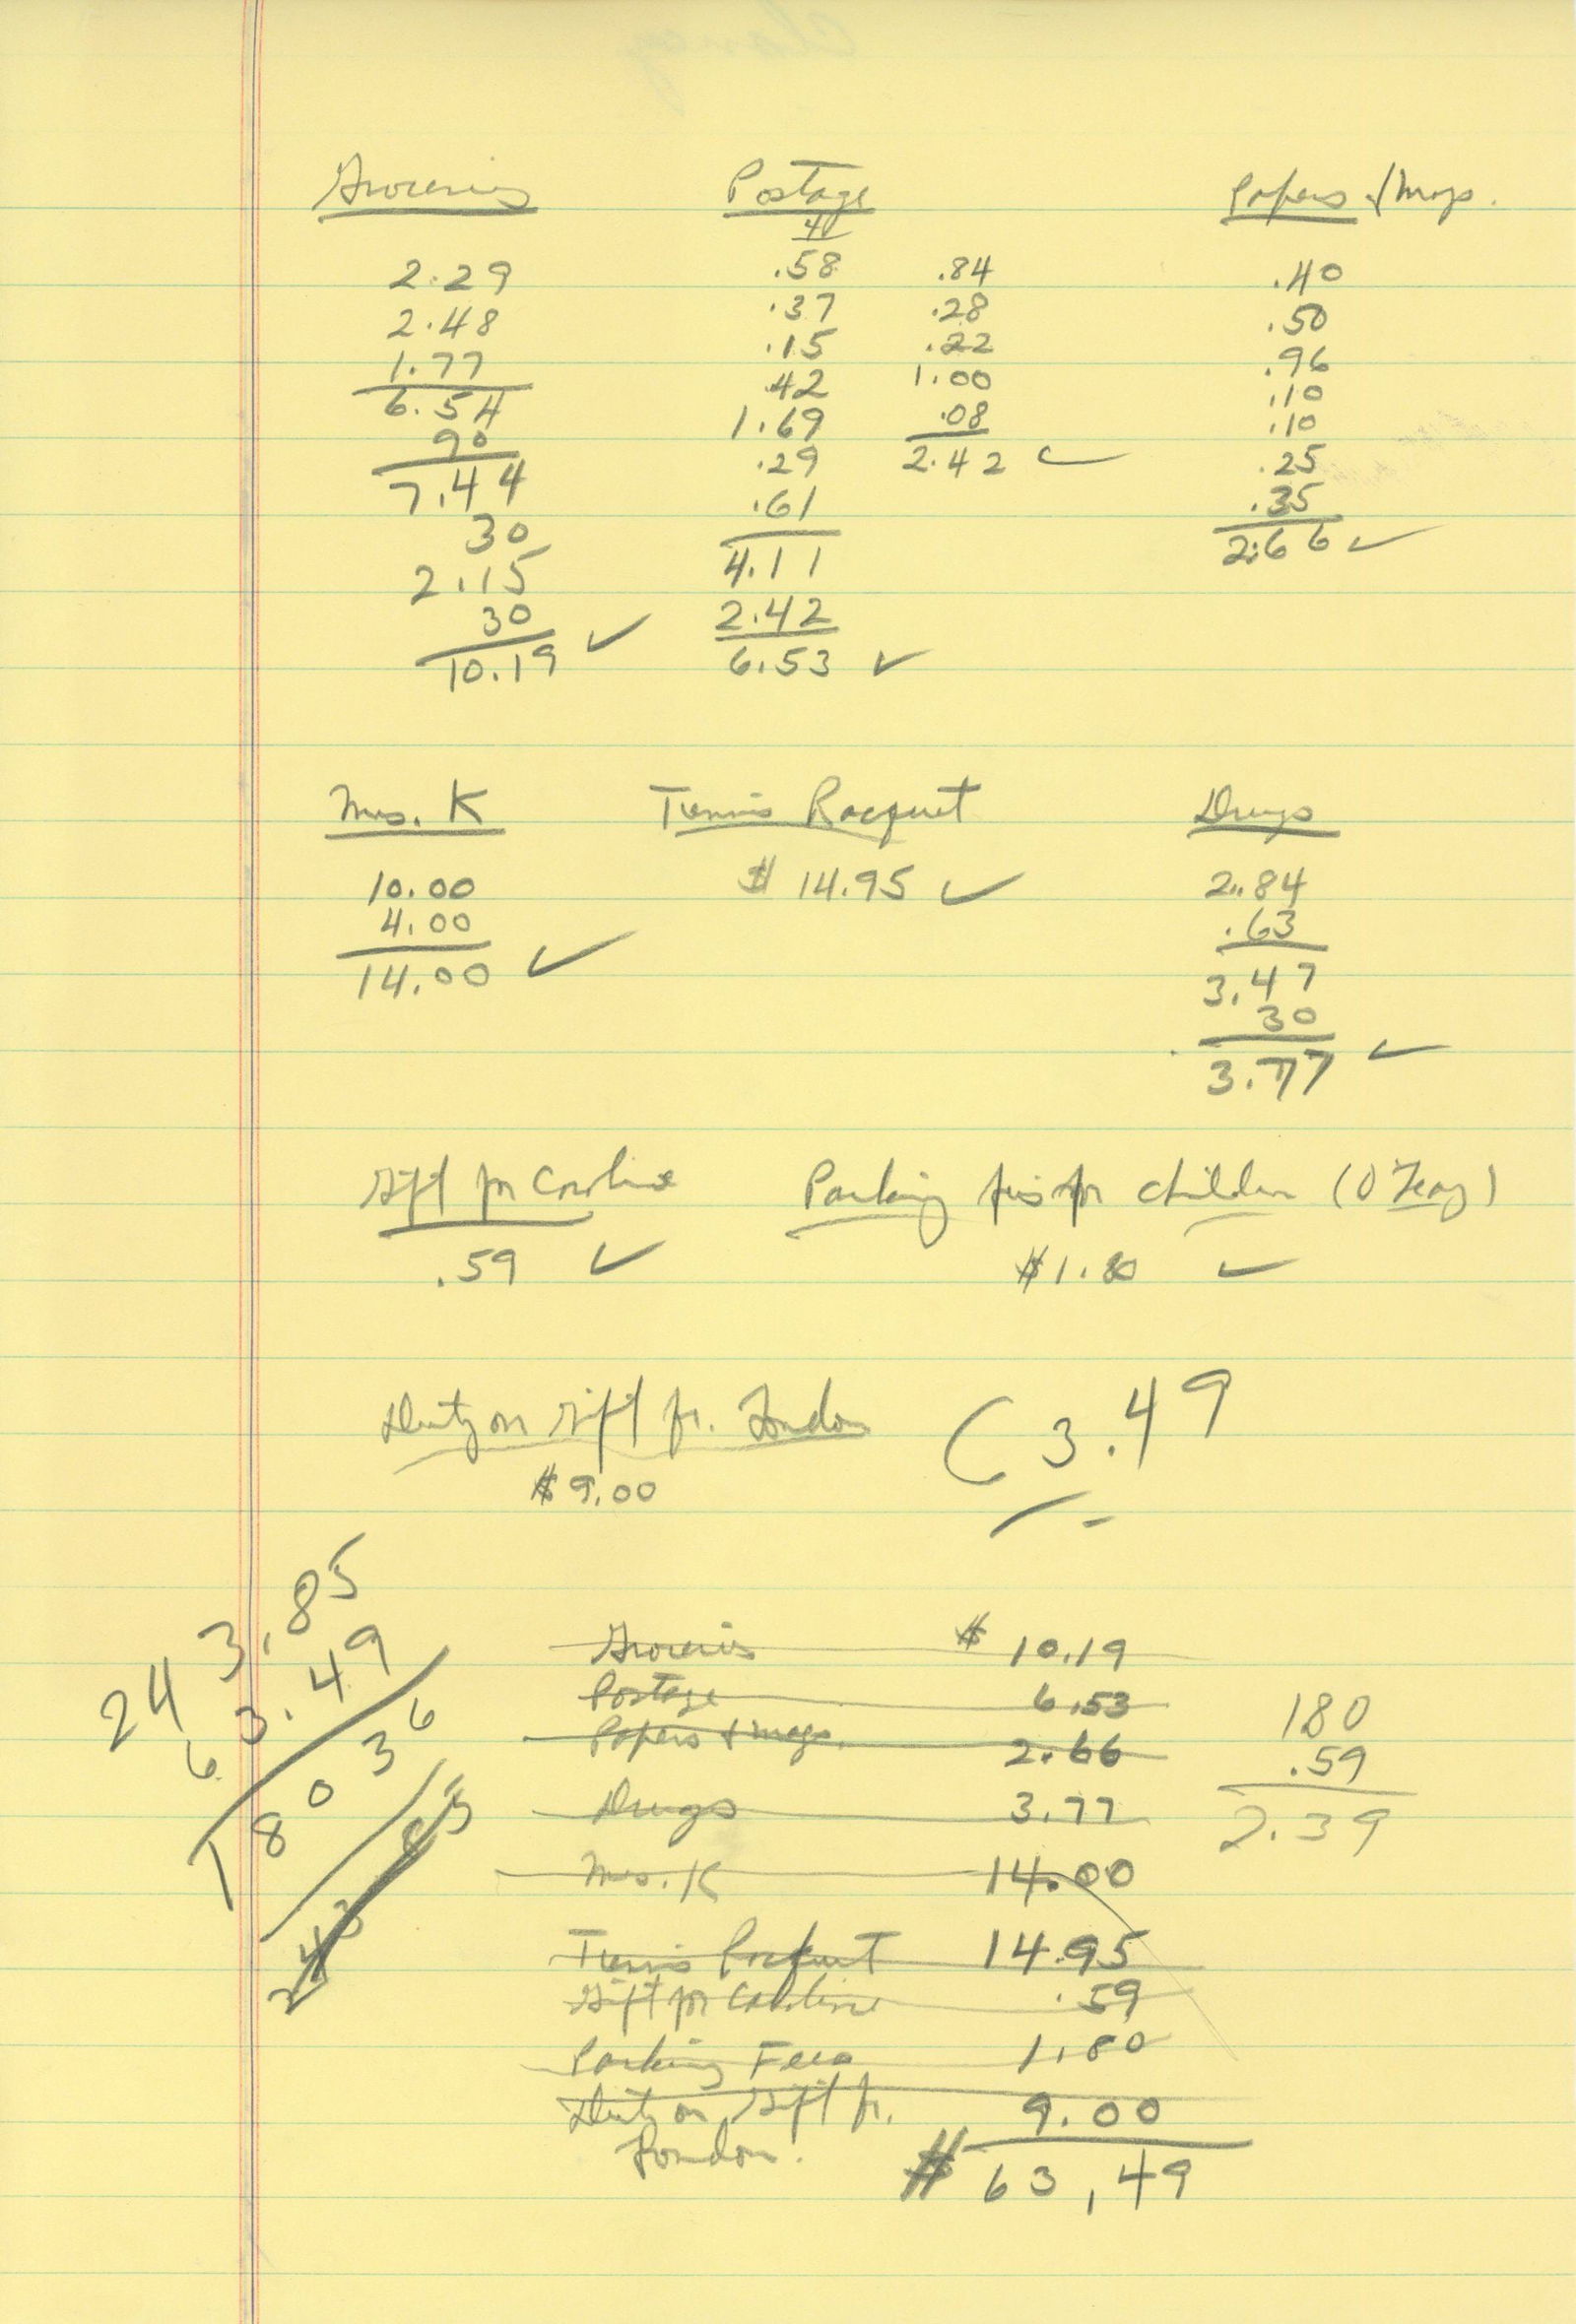 Groceries
2.29
2.48
1.77
6.54
90
7.44
30
2.15
30
10.19 ✓
Postage
4
.58
.37
.15
.42
1.69
.29
.61
4.11
2.42
6.53 ✓
.84
.28
.22
1.00
.08
2.42 ✓
Papers & Mags.
.40
.50
.96
.10
.10
.25
.35
2.66 ✓
Mrs. K
10.00
4.00
14.00 ✓
Tennis Racquet
$ 14.95 ✓
Drugs
2.84
.63
3.47
30
3.77 ✓
Gift for Caroline
.59 ✓
Parking fees for children (O'Leary)
$1.80 ✓
Duty on Gift fr. London
$9.00
3.49
3.85
24 3.49
6
36
180
Groceries $ 10.19
Postage 6.53
Papers & Mags. 2.66
Drugs 3.77
Mrs. K 14.00
Tennis Racquet 14.95
Gift for Caroline .59
Parking Fees 1.80
Duty on Gift fr. 9.00
London. $ 63,49
180
.59
2.39